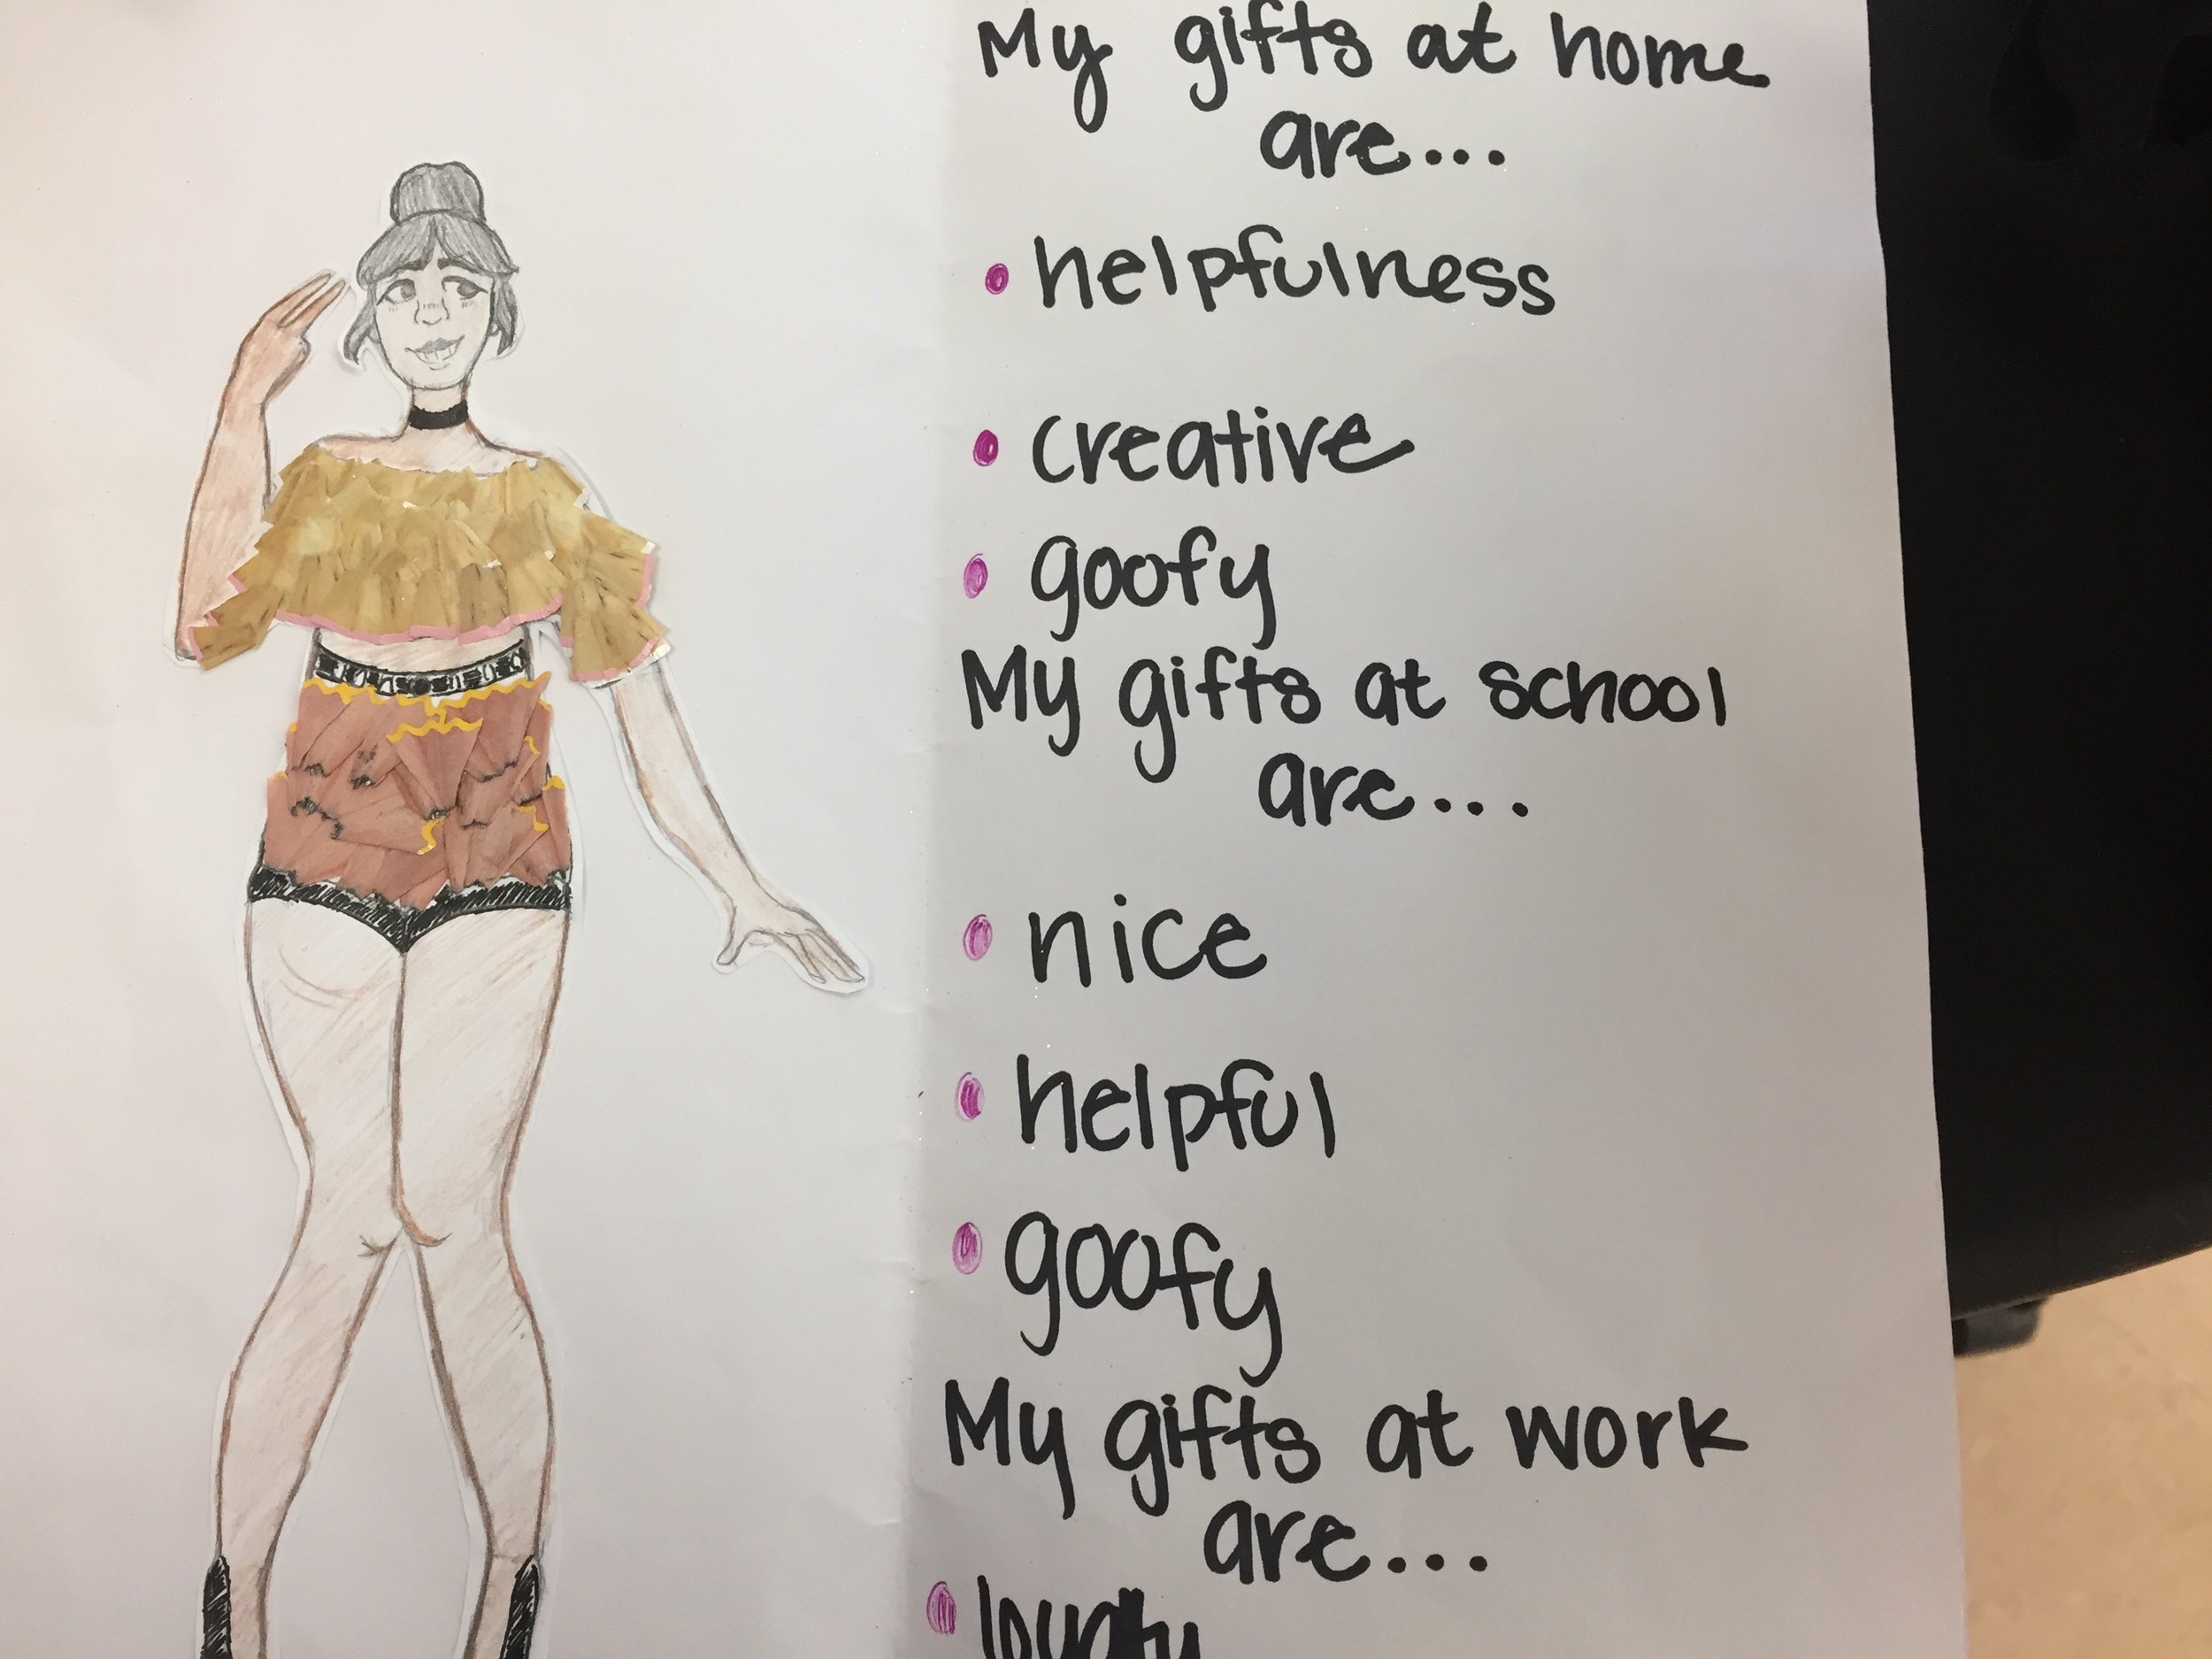 My gifts at home
are...
• helpfulness
• creative
• goofy
My gifts at school
are...
• nice
• helpful
• goofy
My gifts at work
are...
• loyalty